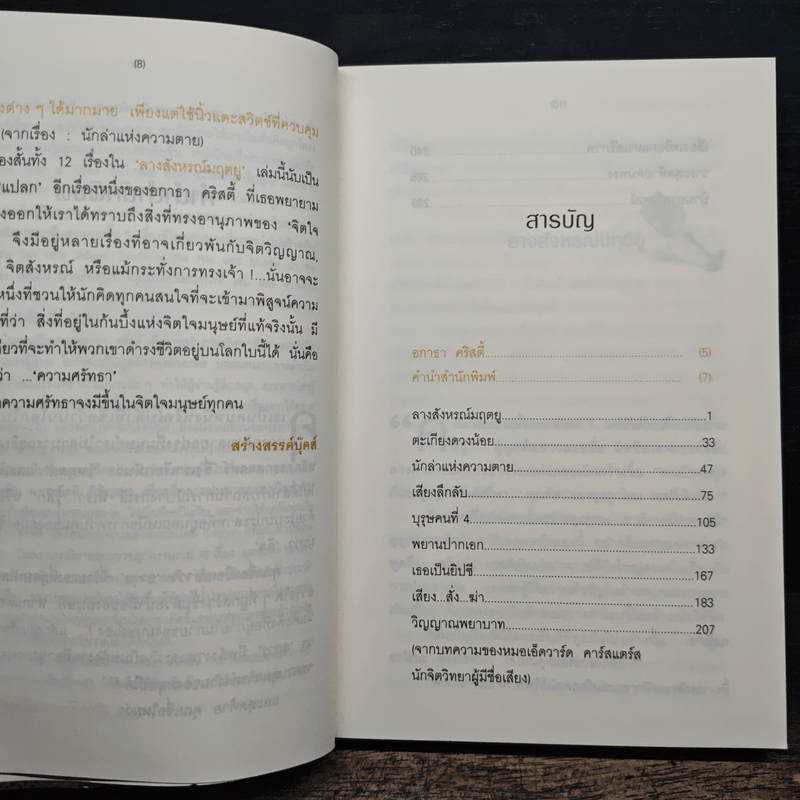 (8)
ต่าง ๆ ได้มากมาย เพียงแต่ใช้นิ้วแตะสวิตช์ที่ควบคุม
(จากเรื่อง : นักล่าแห่งความตาย)
องสั้นทั้ง 12 เรื่องใน ‘ลางสังหรณ์มฤตยู’ เล่มนี้นับเป็น
แปลก’ อีกเรื่องหนึ่งของอกาธา คริสตี้ ที่เธอพยายาม
งออกให้เราได้ทราบถึงสิ่งที่ทรงอานุภาพของ ‘จิตใจ
จึงมีอยู่หลายเรื่องที่อาจเกี่ยวพันกับจิตวิญญาณ,
จิตสังหรณ์ หรือแม้กระทั่งการทรงเจ้า !...นั่นอาจจะ
หนึ่งที่ชวนให้นักคิดทุกคนสนใจที่จะเข้ามาพิสูจน์ความ
ที่ว่า สิ่งที่อยู่ในก้นบึ้งแห่งจิตใจมนุษย์ที่แท้จริงนั้น มี
ียวที่จะทำให้พวกเขาดำรงชีวิตอยู่บนโลกใบนี้ได้ นั่นคือ
ว่า ...‘ความศรัทธา’
ความศรัทธาจงมีขึ้นในจิตใจมนุษย์ทุกคน
สร้างสรรค์บุ๊คส์
สารบัญ
อกาธา คริสตี้ (5)
คำนำสำนักพิมพ์ (7)
ลางสังหรณ์มฤตยู 1
ตะเกียงดวงน้อย 33
นักล่าแห่งความตาย 47
เสียงลึกลับ 75
บุรุษคนที่ 4 105
พยานปากเอก 133
เธอเป็นยิปซี 167
เสียง...สั่ง...ฆ่า 183
วิญญาณพยาบาท 207
(จากบทความของหมอเอ็ดวาร์ด คาร์สแตร์ส
นักจิตวิทยาผู้มีชื่อเสียง)